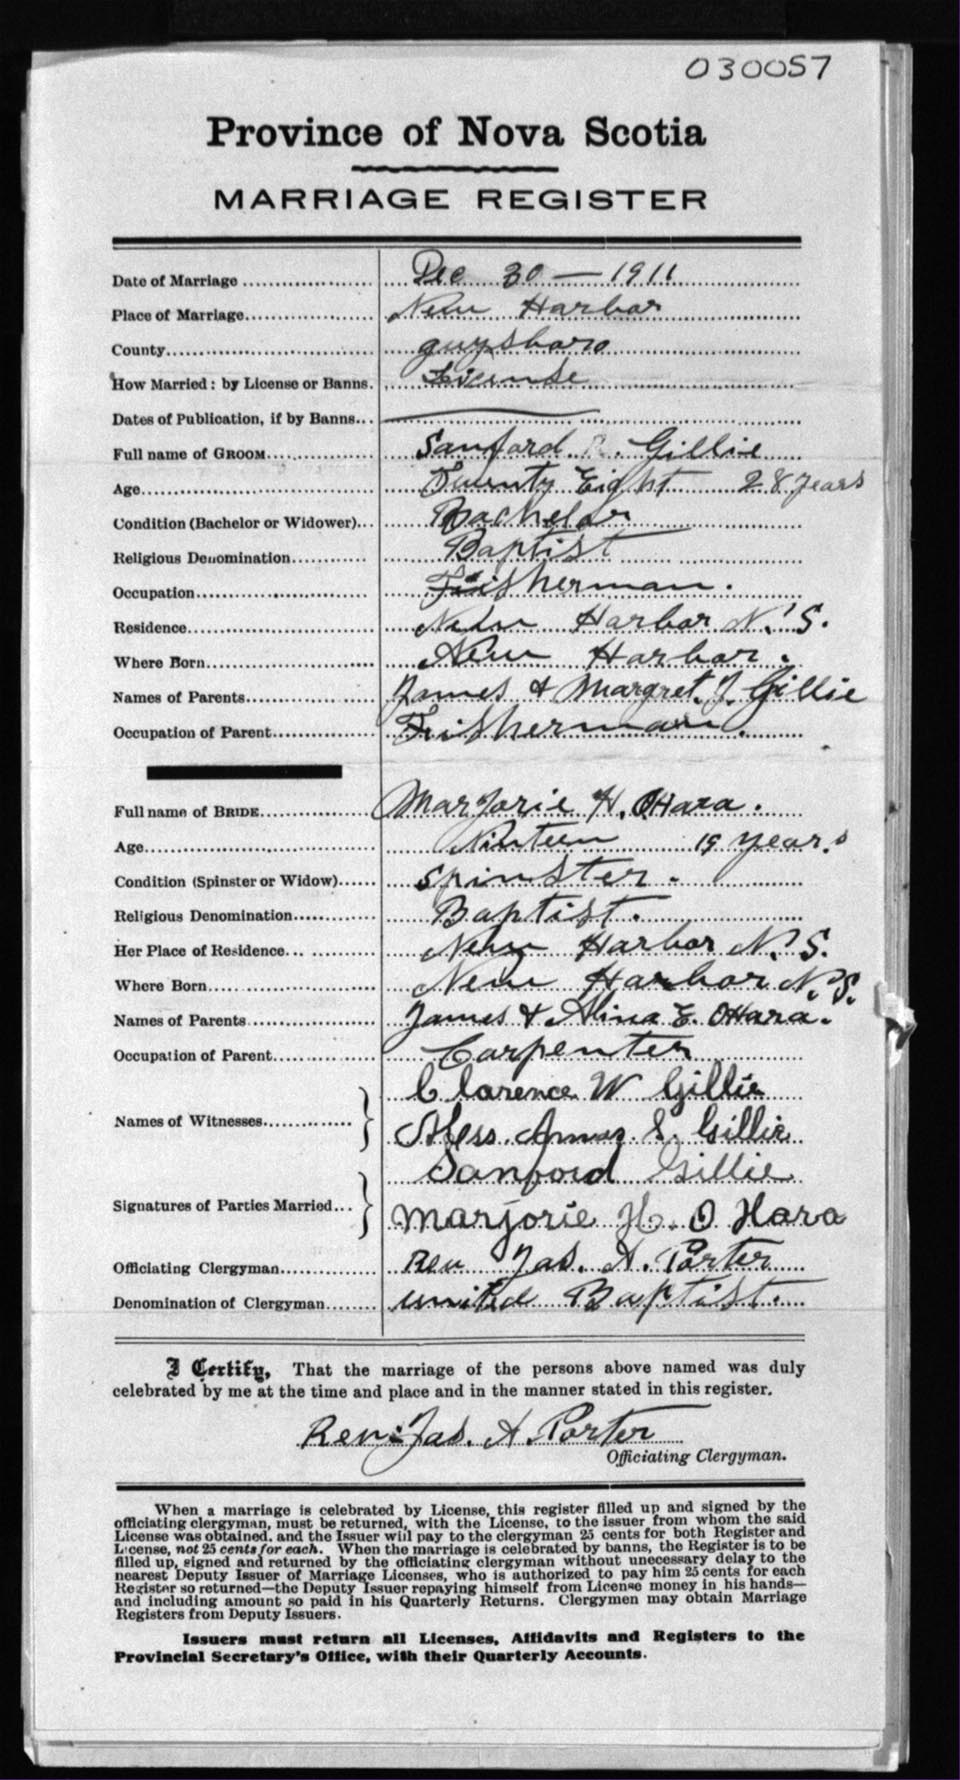 030057
Province of Nova Scotia
MARRIAGE REGISTER
Date of Marriage Dec 30 — 1911
Place of Marriage New Harbor
County guysboro
How Married: by License or Banns. License
Dates of Publication, if by Banns
Full name of GROOM Sanford R. Gillie
Age Twenty Eight 28 years
Condition (Bachelor or Widower) Bachelor
Religious Denomination Baptist
Occupation Fisherman.
Residence New Harbor N.S.
Where Born New Harbor.
Names of Parents James & Margret. J. Gillie
Occupation of Parent Fisherman.
Full name of BRIDE Marjorie H. OHara.
Age Ninteen 19 years
Condition (Spinster or Widow) Spinster.
Religious Denomination Baptist.
Her Place of Residence New Harbor N.S.
Where Born New Harbor N.S.
Names of Parents James & Alina E. OHara.
Occupation of Parent Carpenter
Names of Witnesses Clarence W Gillie
S. Gillie
Signatures of Parties Married Sanford Gillie
Marjorie H. O Hara
Officiating Clergyman Rev Jas. A. Porter
Denomination of Clergyman united Baptist.
I Certify, That the marriage of the persons above named was duly
celebrated by me at the time and place and in the manner stated in this register.
Rev. Jas. A. Porter
Officiating Clergyman.
When a marriage is celebrated by License, this register filled up and signed by the
officiating clergyman, must be returned, with the License, to the issuer from whom the said
License was obtained, and the Issuer will pay to the clergyman 25 cents for both Register and
License, not 25 cents for each. When the marriage is celebrated by banns, the Register is to be
filled up, signed and returned by the officiating clergyman without unecessary delay to the
nearest Deputy Issuer of Marriage Licenses, who is authorized to pay him 25 cents for each
Register so returned—the Deputy Issuer repaying himself from License money in his hands—
and including amount so paid in his Quarterly Returns. Clergymen may obtain Marriage
Registers from Deputy Issuers.
Issuers must return all Licenses, Affidavits and Registers to the
Provincial Secretary's Office, with their Quarterly Accounts.